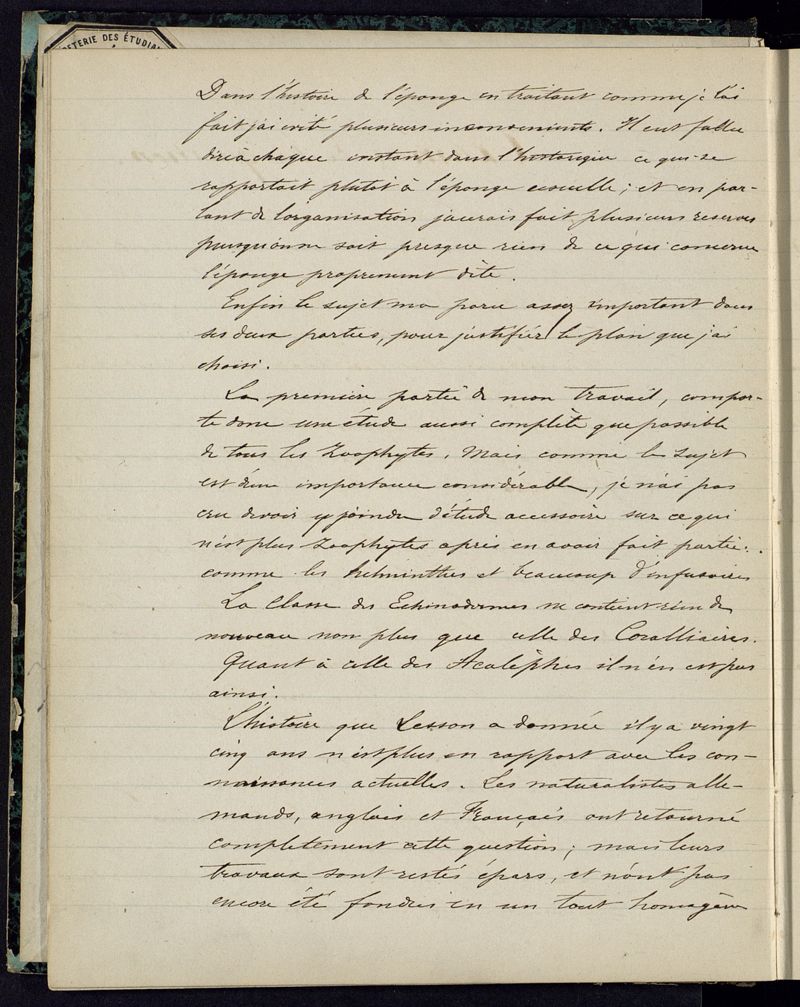 PETERIE DES ÉTUDIA
Dans l'histoire de l'éponge en traitant comme je l'ai
fait j'ai évité plusieurs inconvenients. Il eut fallu
dire à chaque instant dans l'historique ce qui se
rapportait plutot à l'éponge usuelle ; et en par-
lant de l'organisation j'aurais fait plusieurs reserves
puisqu'on ne sait presque rien de ce qui concerne
l'éponge proprement dite.
Enfin le sujet m'a paru assez important dans
ses deux parties, pour justifier le plan que j'ai
choisi.
La première partie de mon travail, compor-
te donc une étude aussi complète que possible
de tous les Zoophytes. Mais comme le sujet
est d'une importance considérable, je n'ai pas
cru devoir y joindre d'étude accessoire sur ce qui
n'est plus Zoophytes après en avoir fait partie :
comme les helminthes et beaucoup d'infusoires
La Classe des Echinodermes ne contient rien de
nouveau non plus que celle des Coralliaires.
Quant à celle des Acalèphes il n'en est pas
ainsi.
L'histoire que Lesson a donnée il y a vingt
cinq ans n'est plus en rapport avec les con-
naissances actuelles. Les naturalistes alle-
mands, anglais et Français ont retourné
completement cette question ; mais leurs
travaux sont restés épars, et n'ont pas
encore été fondus en un tout homogène